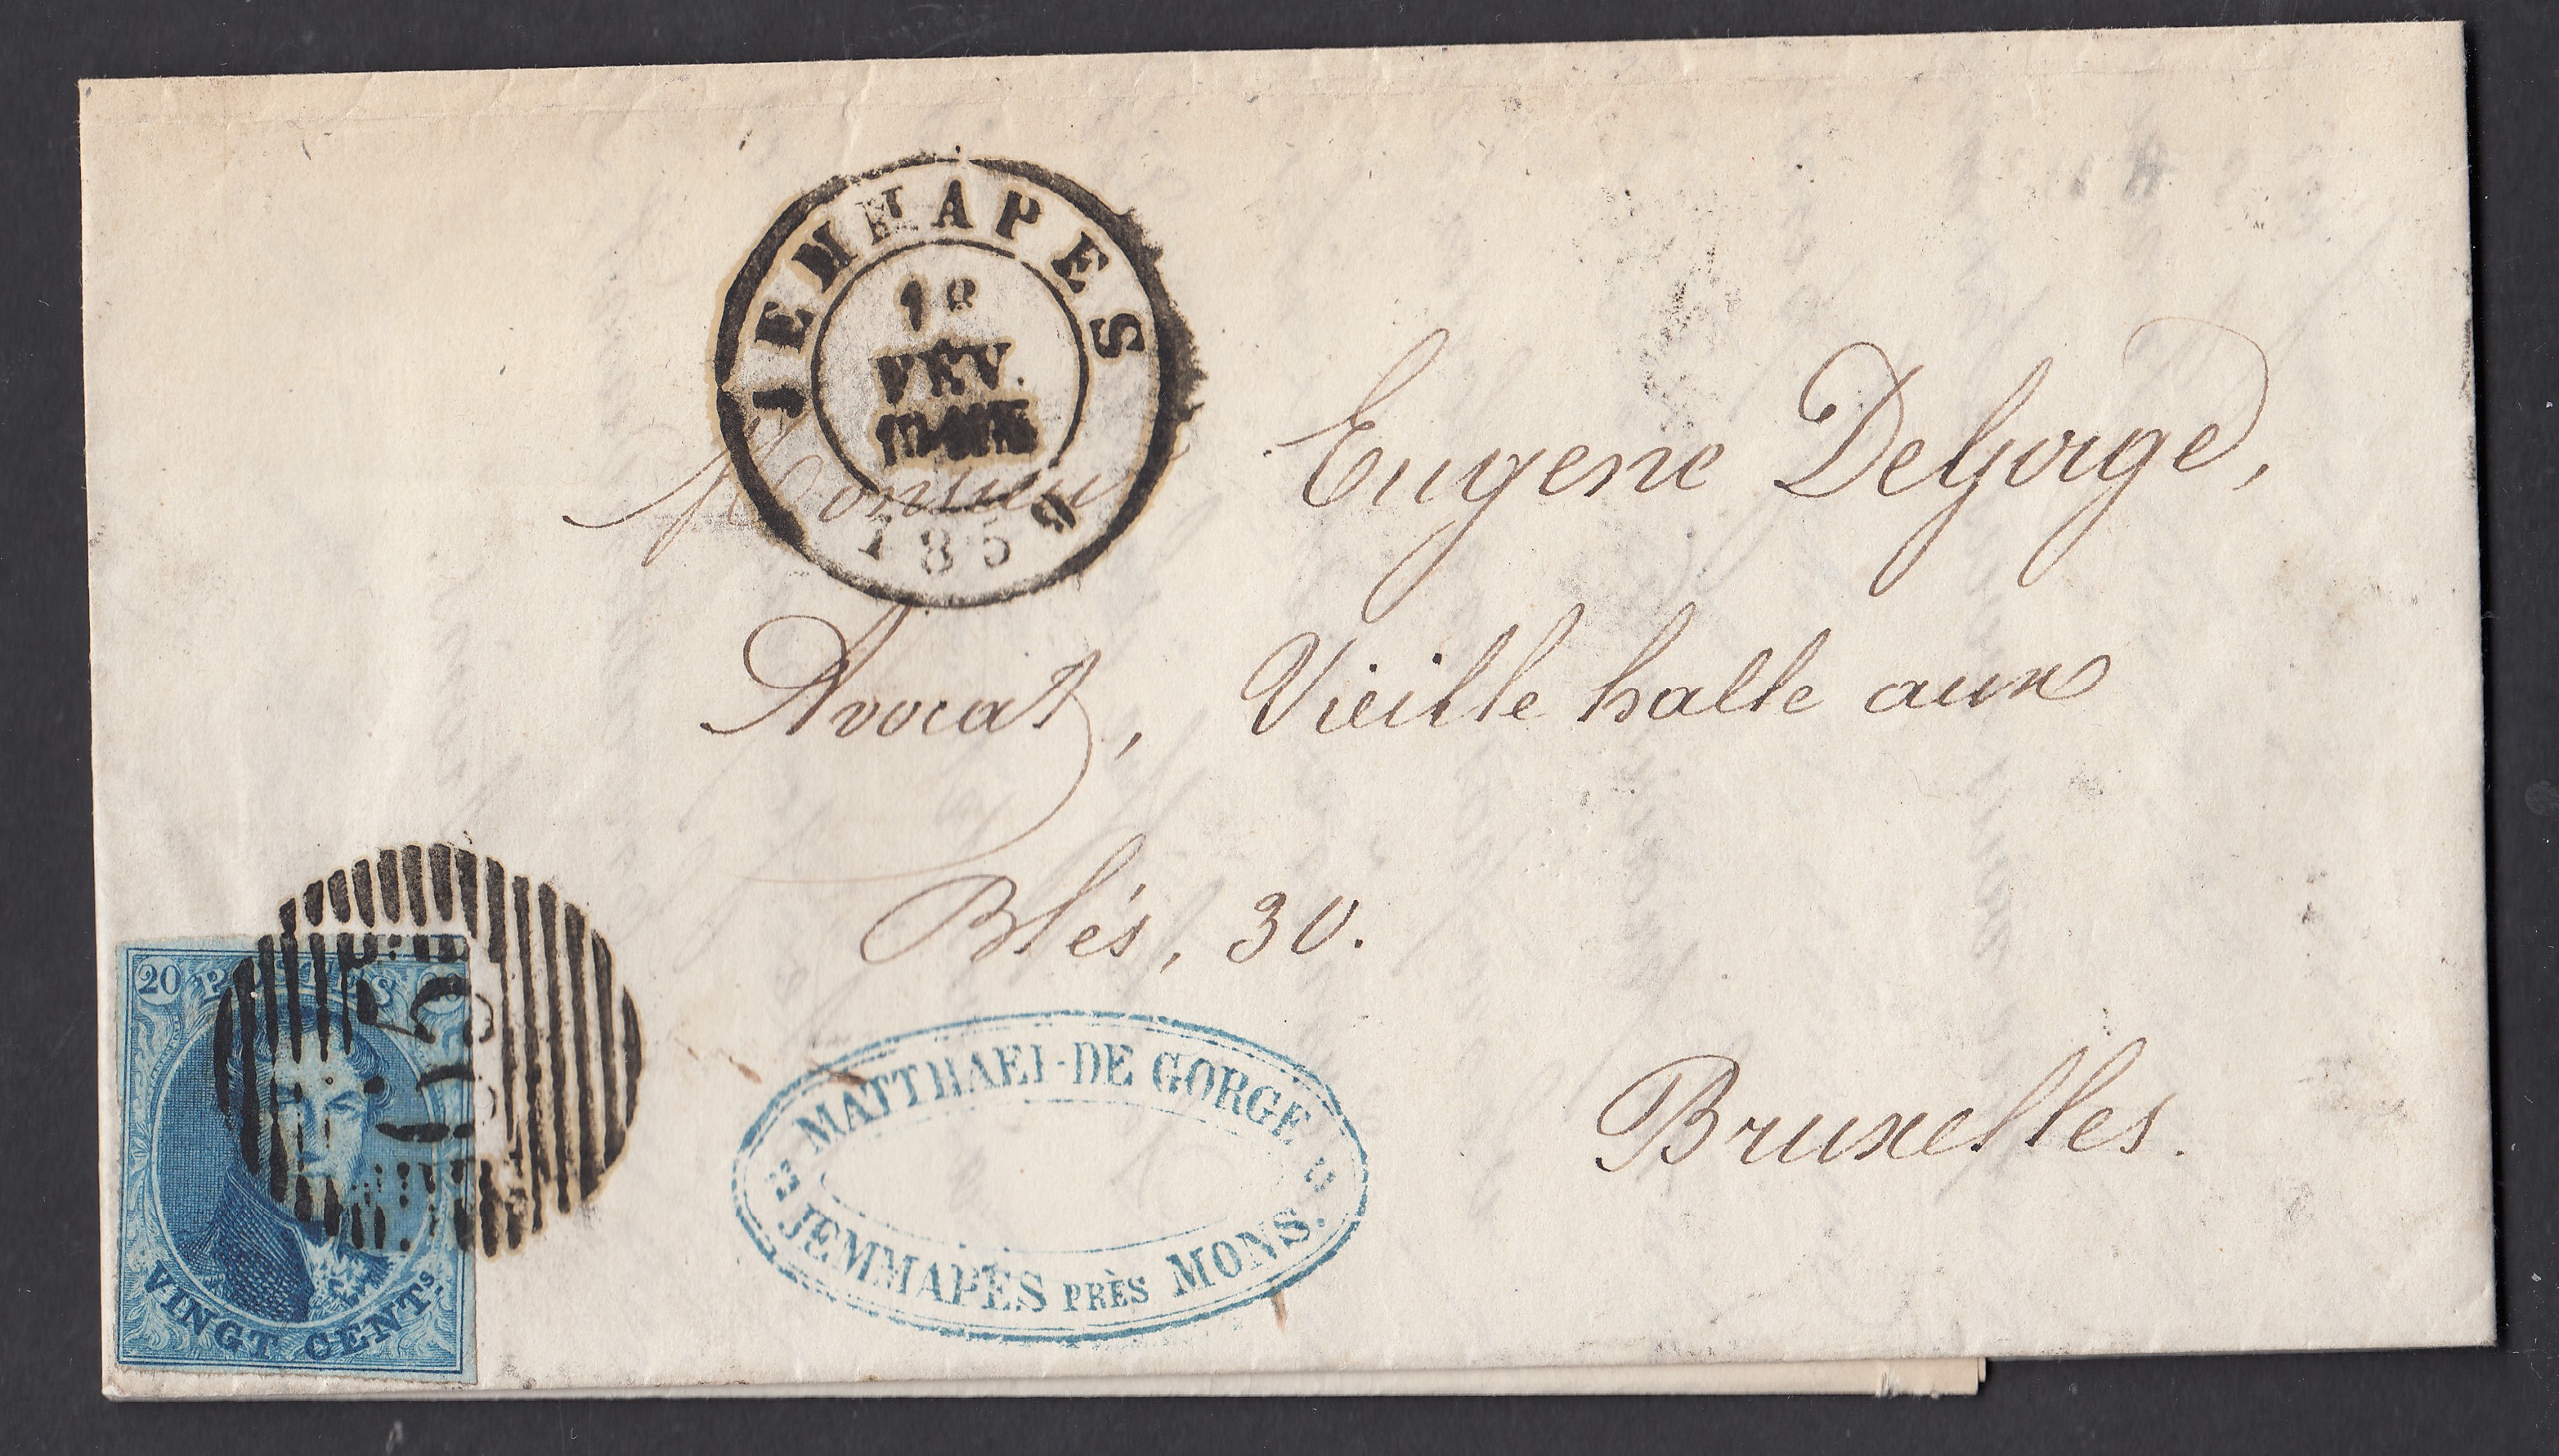 JEMMAPES
18
FÉV.
1859
Monsieur Eugene DeGorge,
Avocat, Vieille halle aux
Blés, 30.
Bruxelles.
20 POSTES
VINGT CENTS.
MATTHAEI-DE GORGE
JEMMAPES PRÈS MONS.